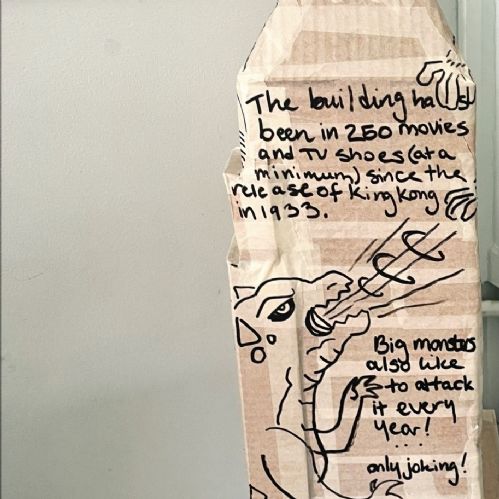 The building has
been in 250 movies
and TV shoes (at a
minimum) since the
release of King Kong
in 1933.
Big monsters
also like
to attack
it every
year!
...
only joking!